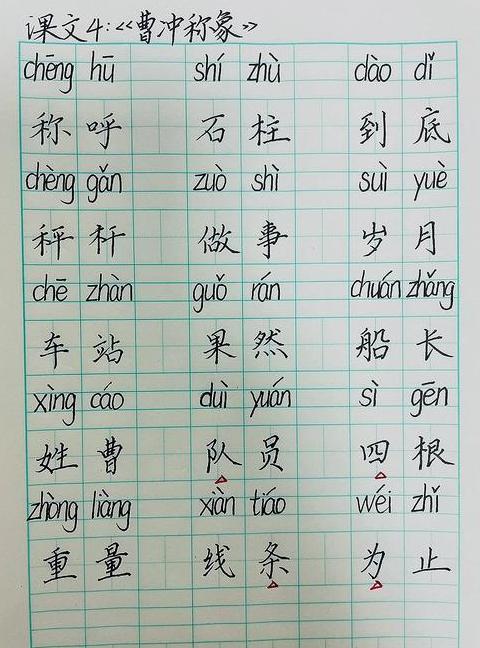 课文4:《曹冲称象》
chēng hū shí zhù dào dǐ
称呼 石柱 到底
chèng gǎn zuò shì suì yuè
秤杆 做事 岁月
chē zhàn guǒ rán chuán zhǎng
车站 果然 船长
xìng cáo duì yuán sì gēn
姓曹 队员 四根
zhòng liàng xiàn tiáo wéi zhǐ
重量 线条 为止